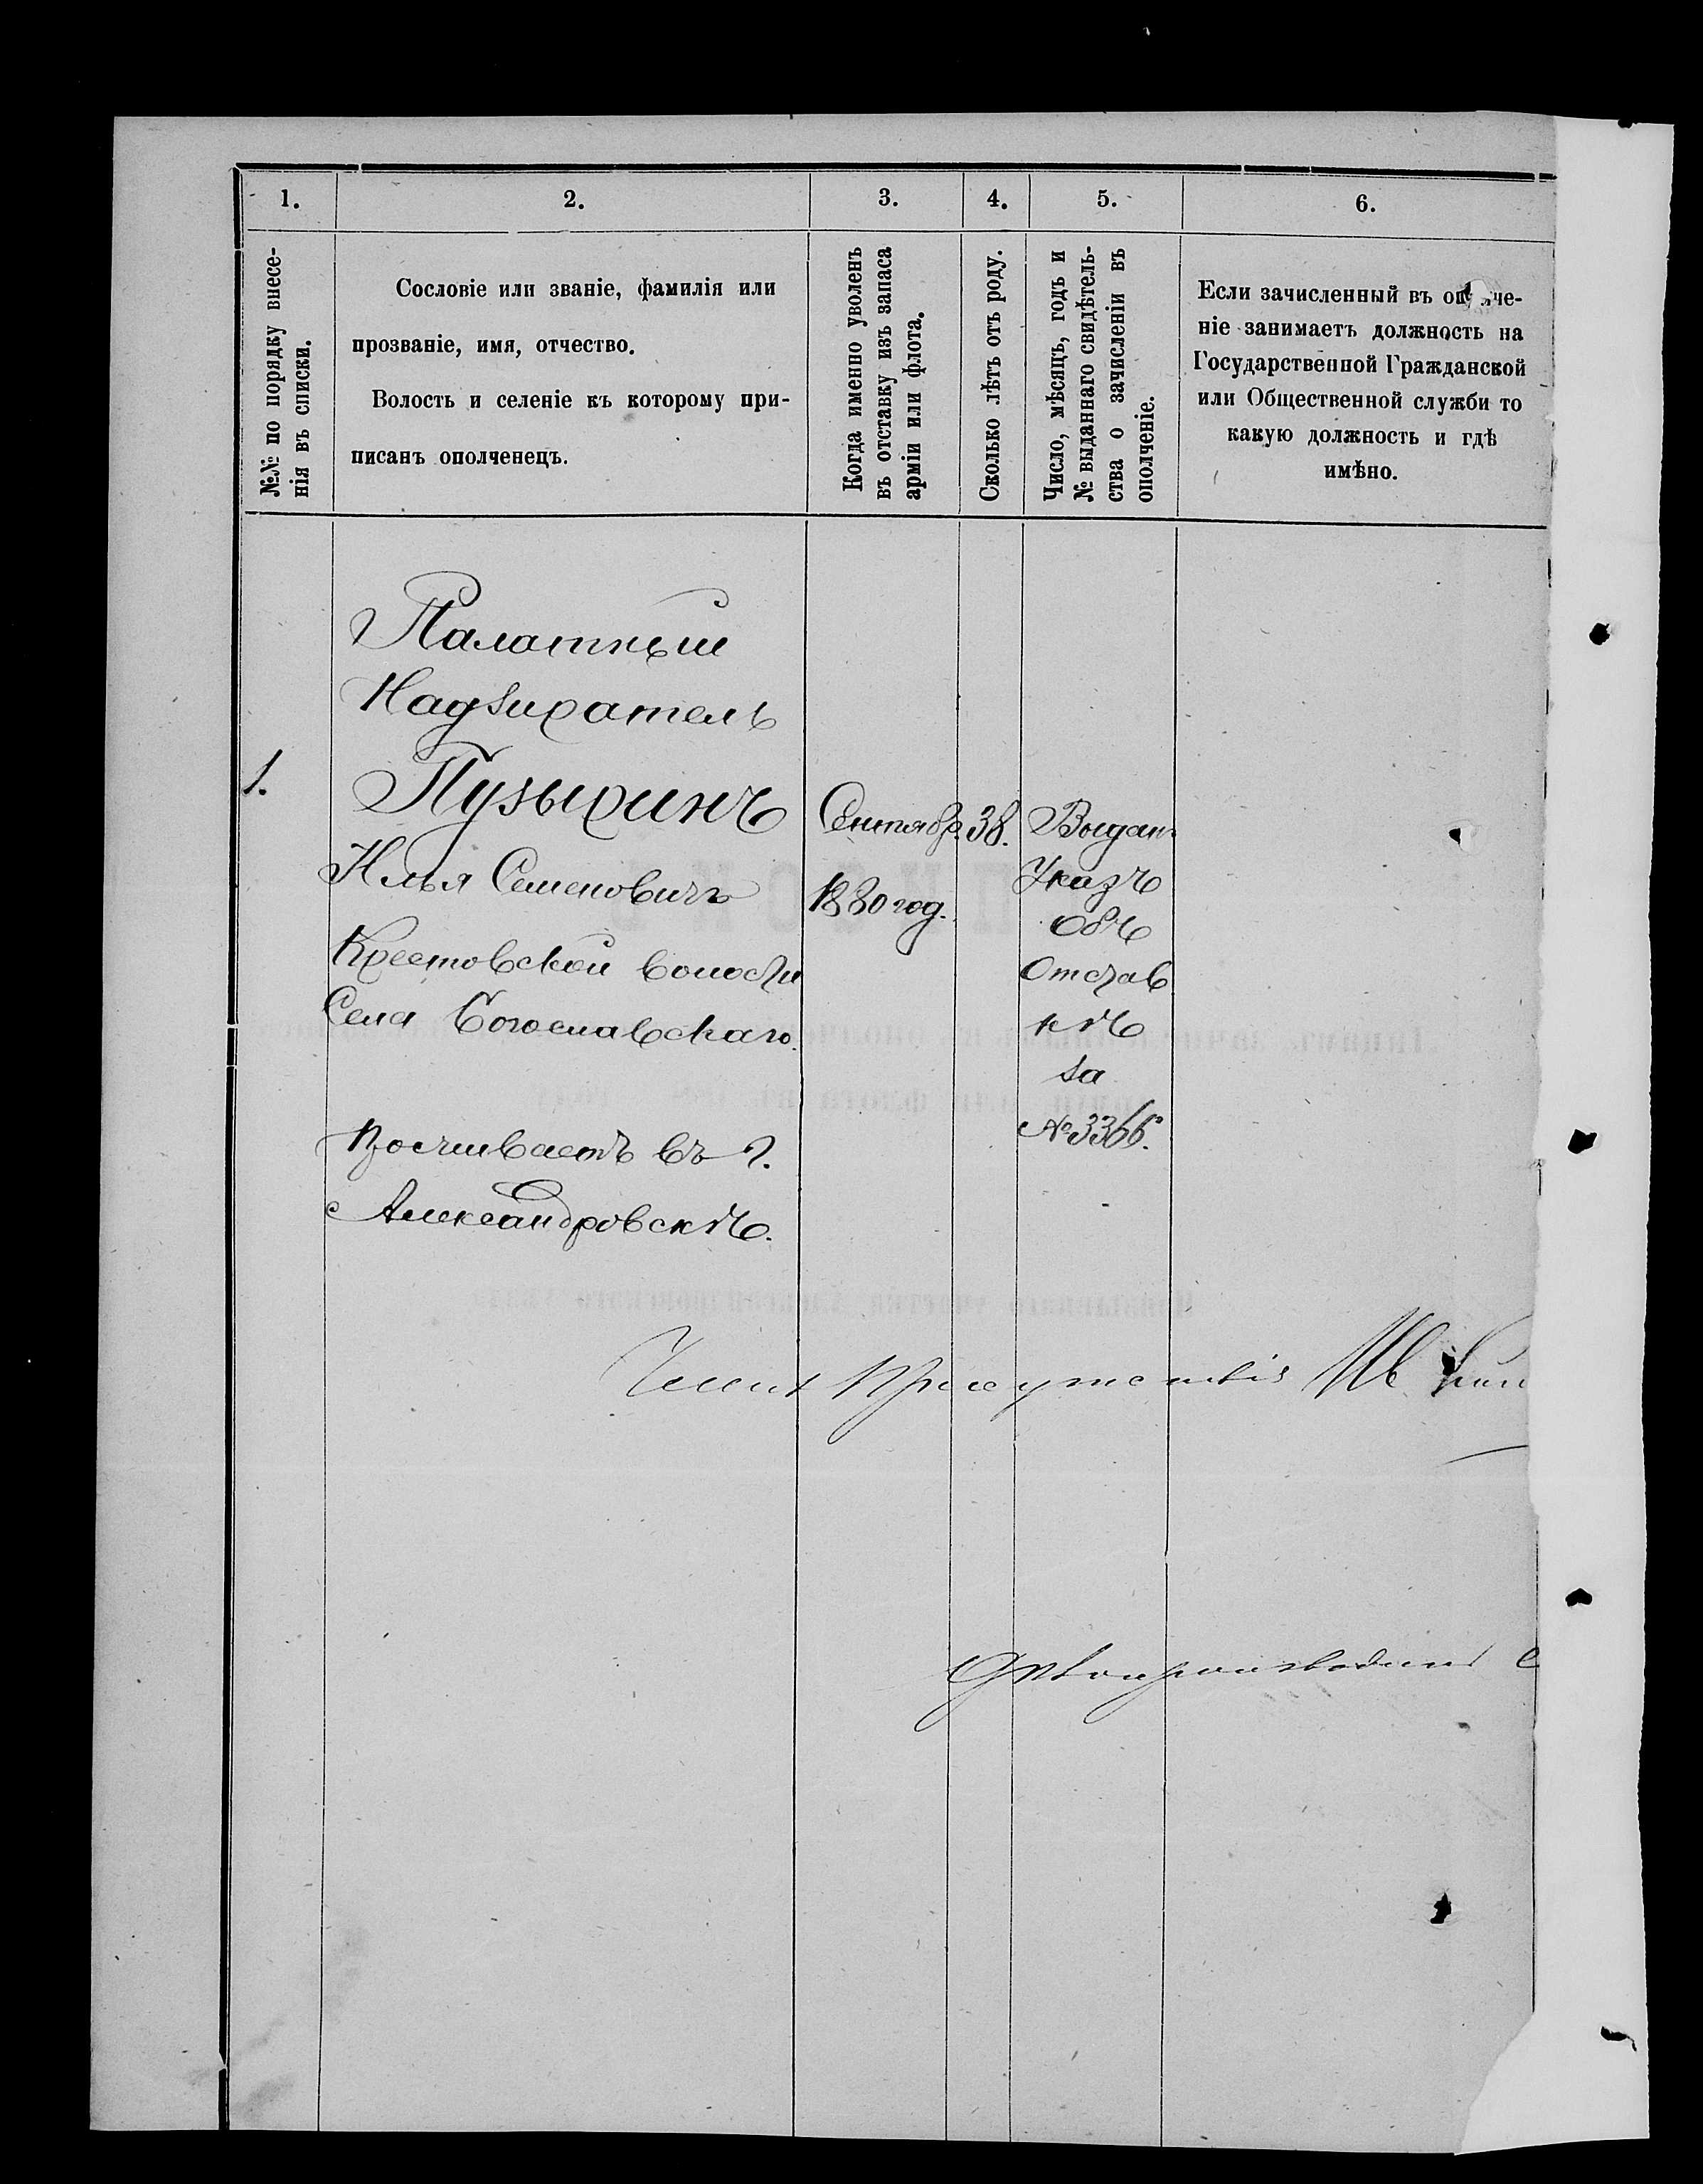 1.
2.
3.
4.
5.
6.
№№ по порядку внесе-
нія въ списки.
Сословіе или званіе, фамилія или
прозваніе, имя, отчество.
Волость и селеніе къ которому при-
писанъ ополченецъ.
Когда именно уволенъ
въ отставку изъ запаса
арміи или флота.
Сколько лѣтъ отъ роду.
Число, мѣсяцъ, годъ и
№ выданнаго свидѣтель-
ства о зачисленіи въ
ополченіе.
Если зачисленный въ оп лче-
ніе занимаетъ должность на
Государственной Гражданской
или Общественной служби то
какую должность и гдѣ
имѣно.
1.
Палатный
Надзиратель
Пузыринъ
Илья Семеновичъ
Крестовской волости
Села Богославскаго.
Проживаетъ въ г.
Александровскѣ.
Сентябр.
1880 год.
38.
Выдан
Указъ
объ
Отстав
кѣ
за
№ 3366.
Членъ Присутствія
Дѣлопроизводит